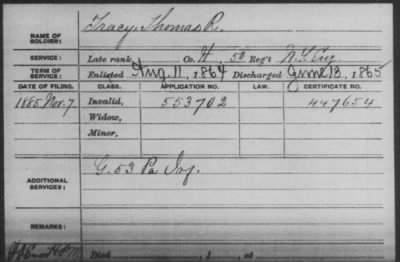 NAME OF SOLDIER: Tracy, Thomas R.
SERVICE: Late rank, Co. H, 50 Reg't N.Y. Eng.
TERM OF SERVICE: Enlisted Aug. 11, 1864 Discharged June 13, 1865
DATE OF FILING. CLASS. APPLICATION NO. LAW. CERTIFICATE NO.
1885 Nov. 7. Invalid, 553702 447654
Widow,
Minor,
ADDITIONAL SERVICES: G. 53 Pa Inf.
REMARKS:
Died , 1 , at